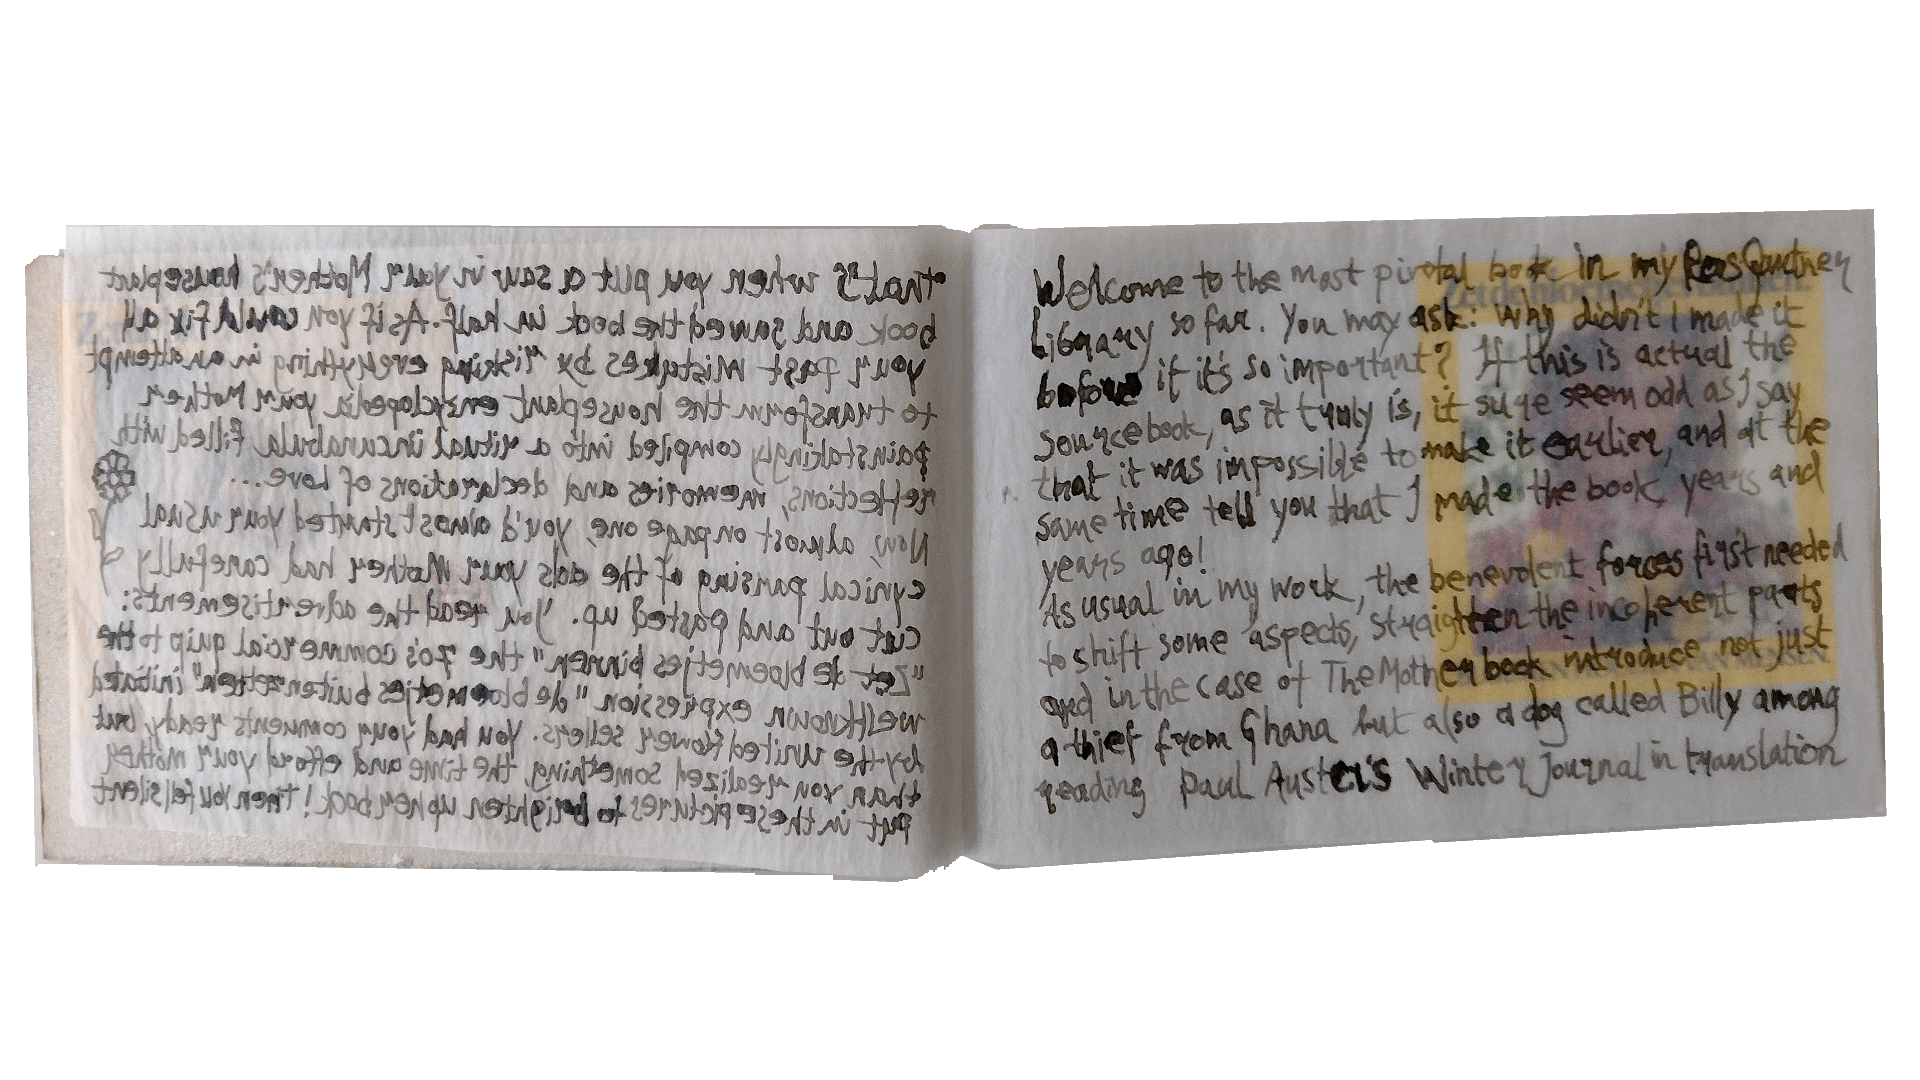 that's when you put a saw in your Mother's houseplant
book and sawed the book in half. As if you could fix all
your past mistakes by risking everything in an attempt
to transform the houseplant encyclopedia your Mother
painstakingly compiled into a ritual incunabula filled with
reflections, memories and declarations of Love...
Now, almost on page one, you'd almost started your usual
cynical parsing of the ads your Mother had carefully
cut out and pasted up. You read the advertisements:
"Zet de bloemetjes binnen" the 70's commercial quip to the
wellknown expression "de bloemetjes buitenzetten" initiated
by the United flower sellers. You had your comments ready, but
than you realized something, the time and efford your mother
put in these pictures to brighten up her book! Then You fel silent
Welcome to the most pivotal book in my
Library so far. You may ask: Why didn't I made it
before if it's so important? If this is actual the
sourcebook, as it truly is, it sure seem odd as I say
that it was impossible to make it earlier, and at the
same time tell you that I made the book, years and
years ago!
As usual in my work, the benevolent forces first needed
to shift some aspects, straighten the incoherent parts
and in the case of The Mother book introduce not just
a thief from Ghana but also a dog called Billy among
reading Paul Auster's Winter Journal in translation
Zet de bloemetjes binnen.